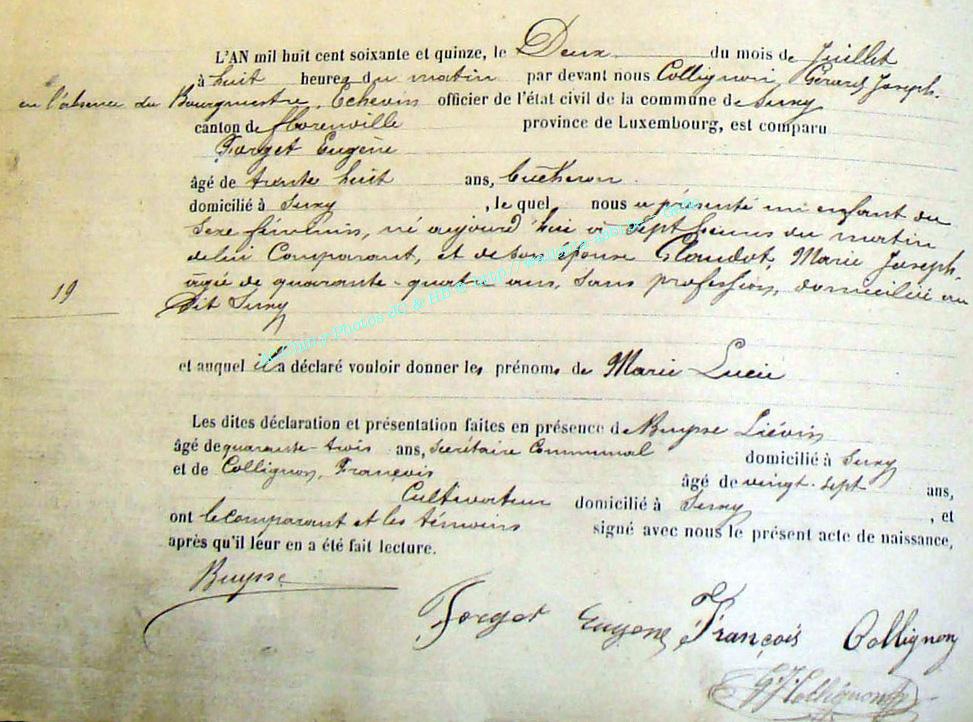 L'AN mil huit cent soixante et quinze, le Deux du mois de Juillet
à huit heures du matin par devant nous Collignon, Gérard Joseph.
en l'absence du Bourgmestre, Echevin officier de l'état civil de la commune de Suxy
canton de florenville province de Luxembourg, est comparu
Forget Eugène
âgé de trente huit ans, bucheron
domicilié à Suxy, le quel nous a présenté un enfant du
sexe féminin, né aujourd'hui à sept heures du matin
de lui Comparant, et de son épouse Glaudot, Marie Joseph.
âgée de quarante-quatre ans, sans profession, domiciliée au
19
dit Suxy
et auquel il a déclaré vouloir donner les prénoms de Marie Lucie
Les dites déclaration et présentation faites en présence de Buysse Liévin
âgé de quarante-trois ans, secrétaire Communal domicilié à Suxy
et de Collignon, François âgé de vingt-sept ans,
Cultivateur domicilié à Suxy, et
ont le comparant et les témoins signé avec nous le présent acte de naissance,
après qu'il leur en a été fait lecture.
Buysse
Forget Eugene François Collignon
GJCollignon